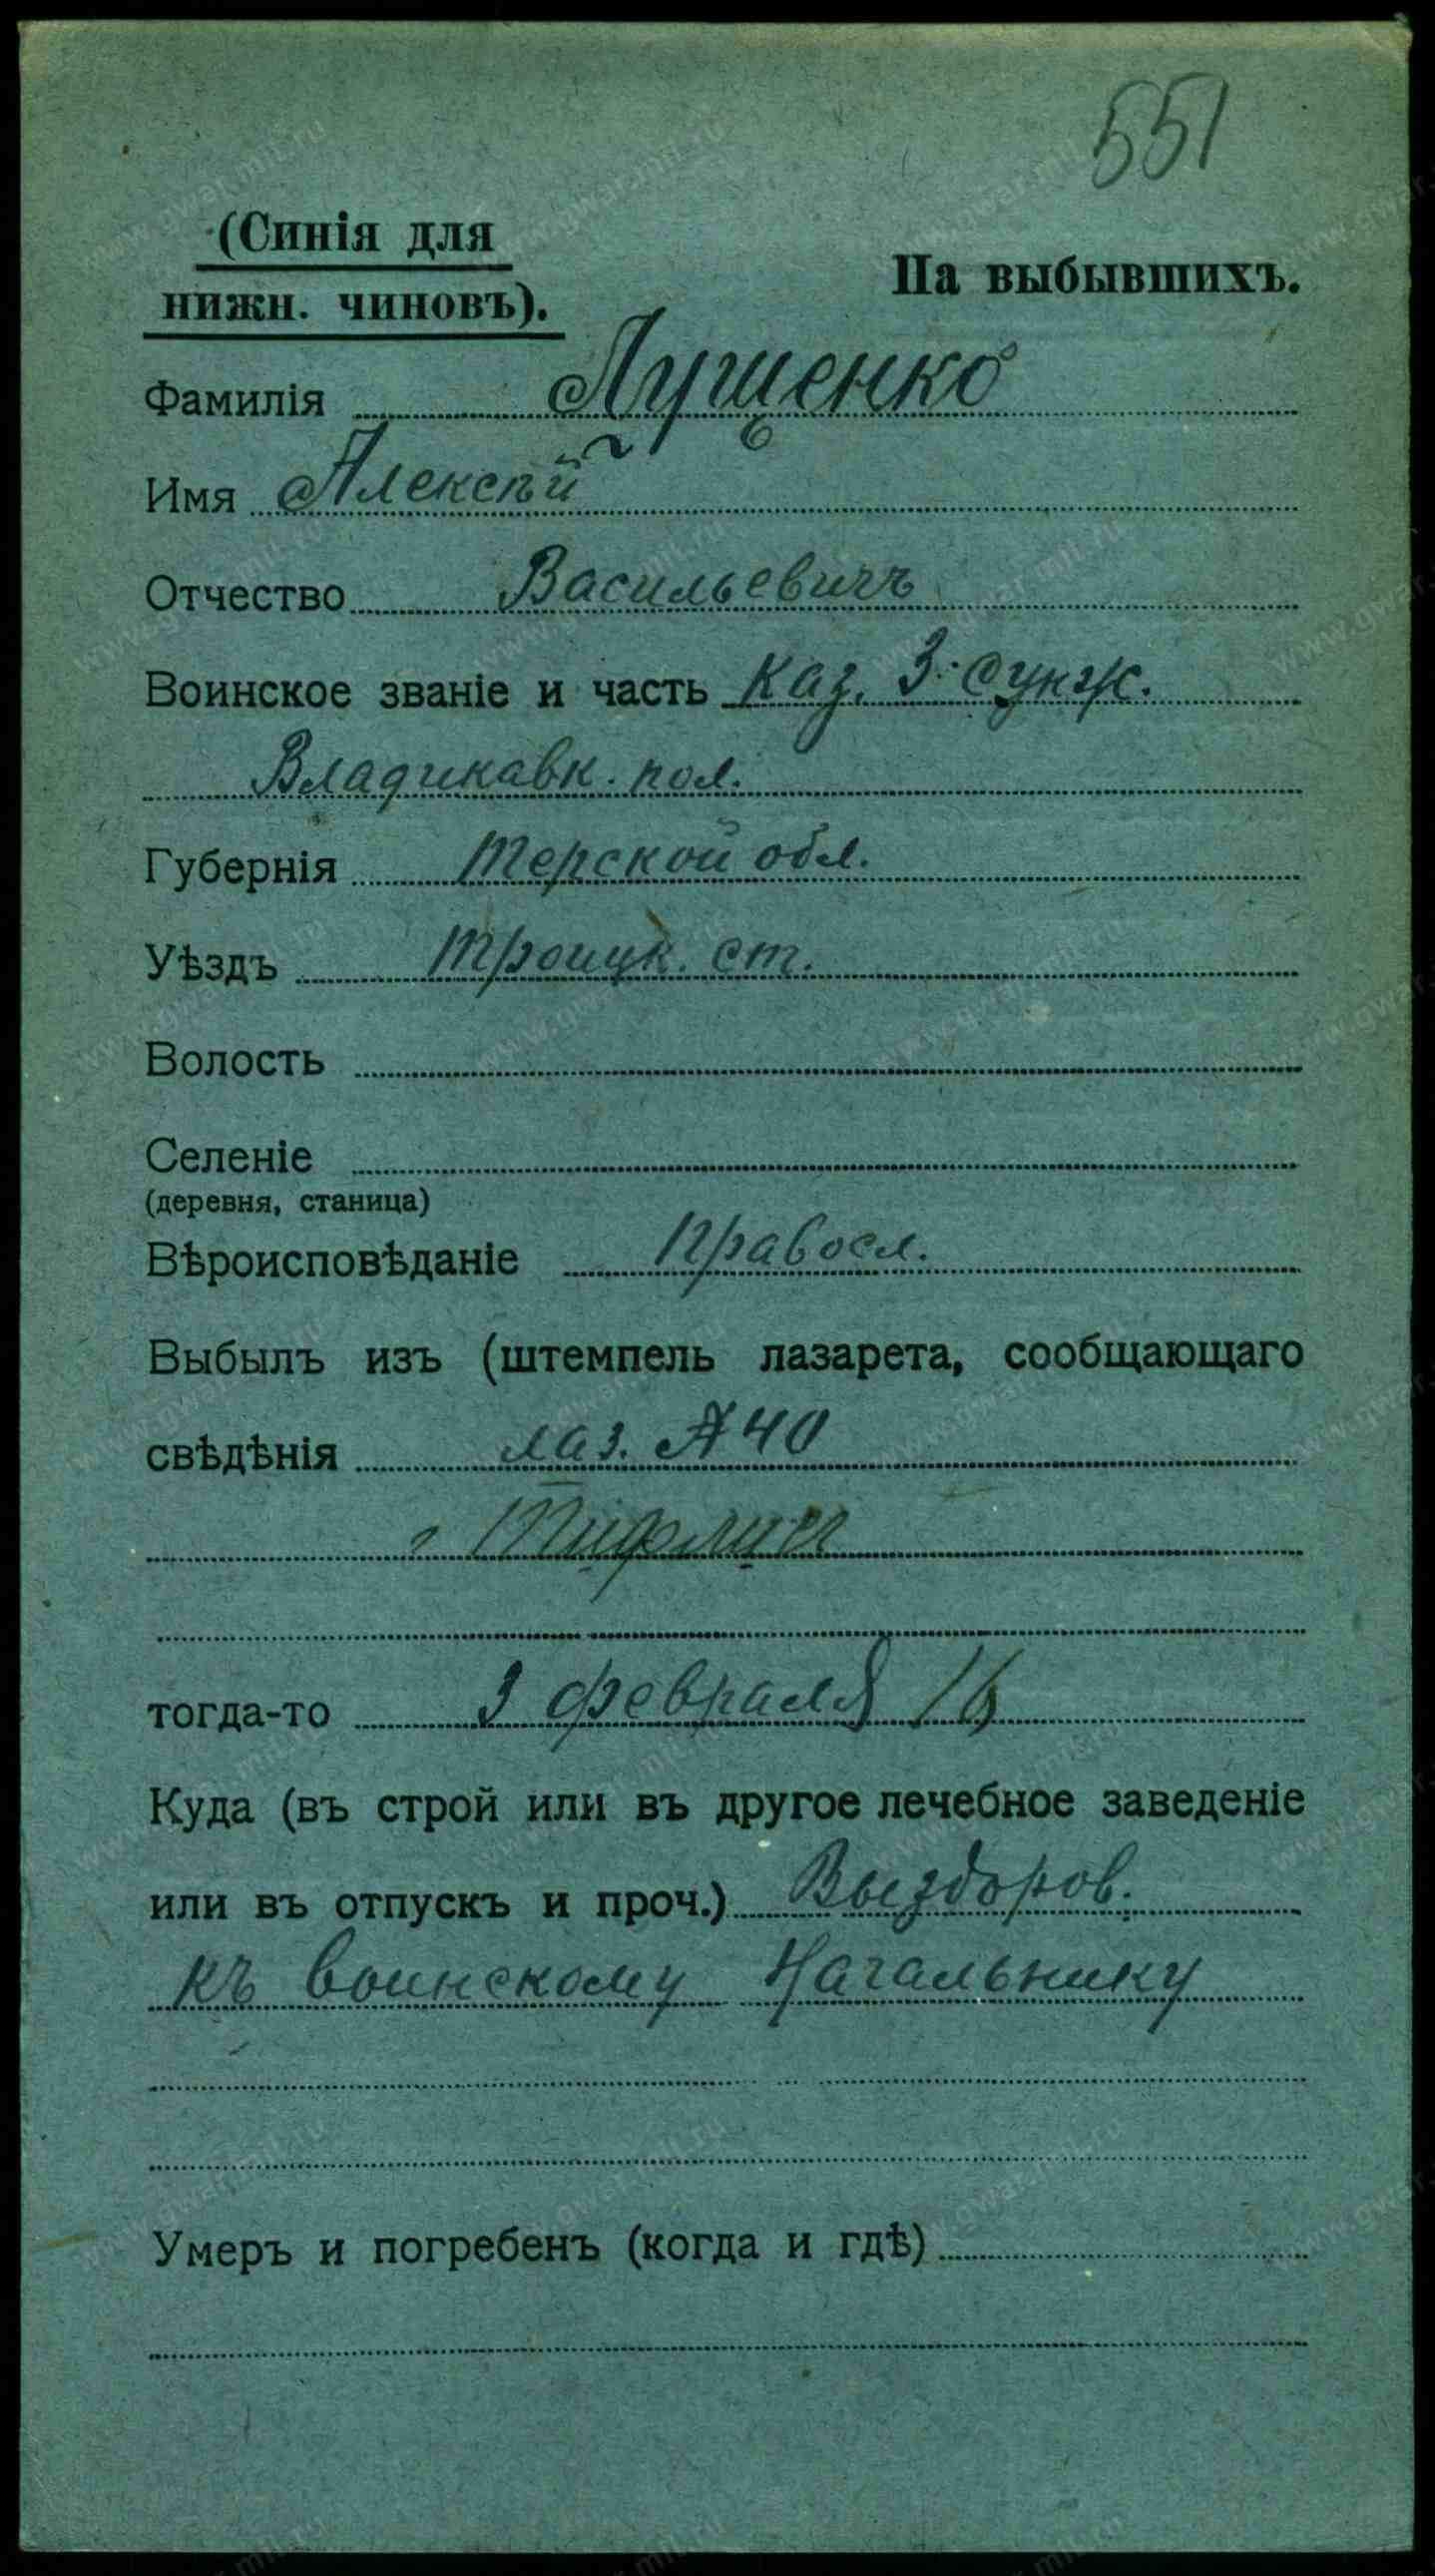 551
(Синія для
нижн. чиновъ).
На выбывшихъ.
Фамилія Лущенко
Имя Алексѣй
Отчество Васильевичъ
Воинское званіе и часть Каз. 3. Сунж.
Владикавк. пол.
Губернія Терской обл.
Уѣздъ Троицк. ст.
Волость
Селеніе
(деревня, станица)
Вѣроисповѣданіе Правосл.
Выбылъ изъ (штемпель лазарета, сообщающаго
свѣдѣнія лаз. № 40
г. Тифлиса
тогда-то 3 февраля 16
Куда (въ строй или въ другое лечебное заведеніе
или въ отпускъ и проч.) Выздоров.
къ воинскому Начальнику
Умеръ и погребенъ (когда и гдѣ)
www.gwar.mil.ru